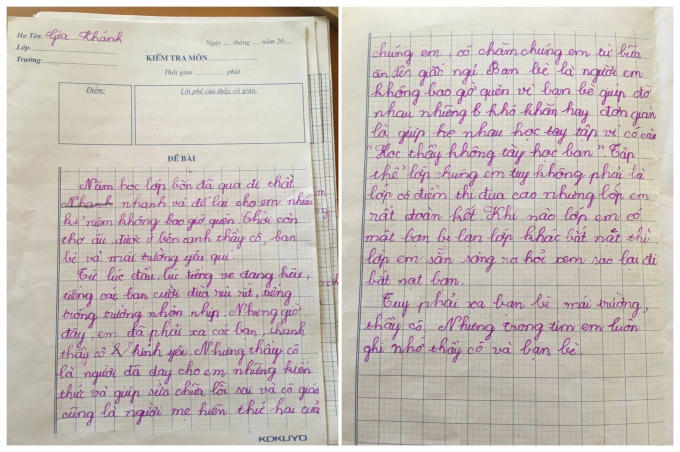 Họ Tên: Gia Khánh
Ngày .... tháng .... năm 20....
Lớp:
Trường
KIỂM TRA MÔN
Thời gian phút
Điểm:
Lời phê của thầy, cô giáo.
ĐỀ BÀI
Năm học lớp bốn đã qua đi thật
Nhanh nhanh và để lại cho em nhiều
kỉ niệm không bao giờ quên. Thời còn
thơ ấu, được ở bên cạnh thầy cô, bạn
bè và mái trường yêu quí.
Từ lúc đầu, lúc tiếng ve đang kêu,
tiếng các bạn cười đùa ríu rít, tiếng
trống trường nhộn nhịp. Nhưng giờ
đây, em đã phải xa các bạn,
thầy cô kính yêu. Nhưng thầy cô
là người đã dạy cho em những kiến
thức và giúp sửa chữa lỗi sai và cô giáo
cũng là người mẹ hiền thứ hai của
KOKUYO
chúng em, cô chăm chúng em từ bữa
ăn đến giấc ngủ. Bạn bè là người em
không bao giờ quên vì bạn bè giúp đỡ
nhau những khó khăn hay đơn giản
là giúp hẹ nhau học tay tập vì có câu
"Học thầy không tày học bạn". Tập
thể lớp chúng em tuy không phải là
lớp có điểm thi đua cao nhưng lớp em
rất đoàn hết. Khi nào lớp em có
một bạn bị bạn lớp khác bắt nất thì
lớp em sẵn sàng ra hỏi xem sao lại đi
bắt nạt bạn.
Tuy phải xa bạn bè mái trường,
thầy cô, Nhưng trong tim em luôn
ghi nhớ thầy cô và bạn bè.